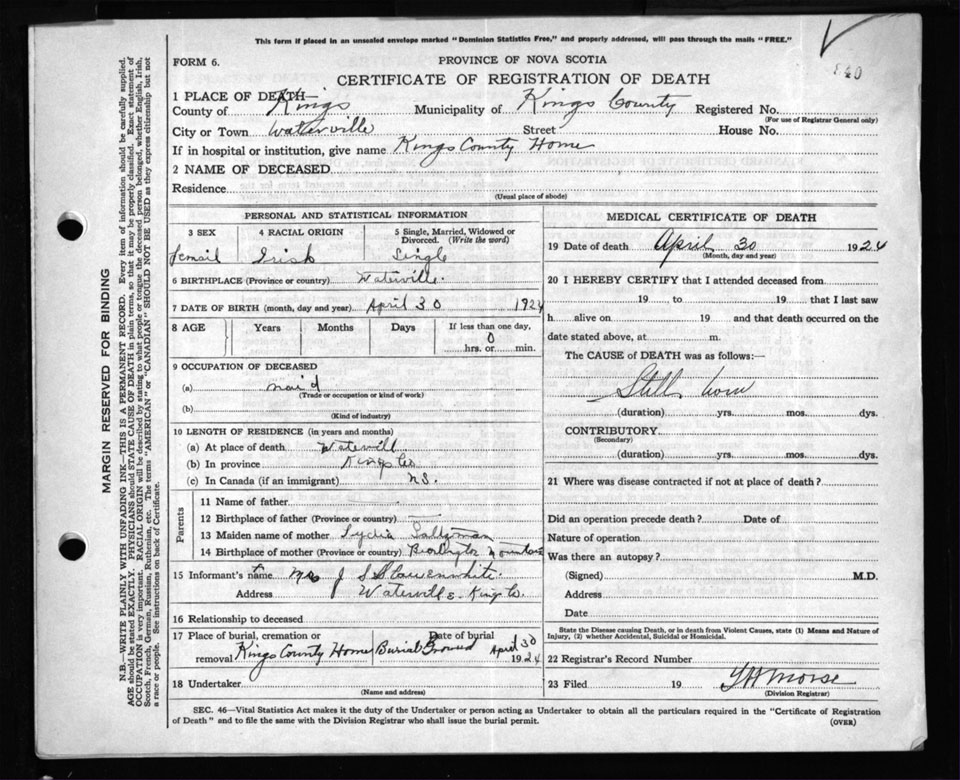 This form if placed in an unsealed envelope marked "Dominion Statistics Free," and properly addressed, will pass through the mails "FREE."
FORM 6.
PROVINCE OF NOVA SCOTIA
CERTIFICATE OF REGISTRATION OF DEATH
1 PLACE OF DEATH—
County of Kings Municipality of Kings County Registered No.
(For use of Registrar General only)
City or Town Waterville Street House No.
If in hospital or institution, give name Kings County Home
2 NAME OF DECEASED
Residence
(Usual place of abode)
PERSONAL AND STATISTICAL INFORMATION
3 SEX 4 RACIAL ORIGIN 5 Single, Married, Widowed or Divorced. (Write the word)
Femail Irish Single
6 BIRTHPLACE (Province or country) Waterville.
7 DATE OF BIRTH (month, day and year) April 30 1924
8 AGE Years Months Days If less than one day,
0
hrs. or min.
9 OCCUPATION OF DECEASED
(a) maid
(Trade or occupation or kind of work)
(b)
(Kind of industry)
10 LENGTH OF RESIDENCE (in years and months)
(a) At place of death Watervill
(b) In province Kings Co
(c) In Canada (if an immigrant) N.S.
Parents
11 Name of father
12 Birthplace of father (Province or country)
13 Maiden name of mother Lydia Saltzman
14 Birthplace of mother (Province or country) Mountain
15 Informant's name Mrs J S Slawenwhite.
Address Waterville Kings Co.
16 Relationship to deceased
17 Place of burial, cremation or removal Kings County Home Burial Ground
Date of burial April 30 1924
18 Undertaker
(Name and address)
MEDICAL CERTIFICATE OF DEATH
19 Date of death April 30 1924
(Month, day and year)
20 I HEREBY CERTIFY that I attended deceased from
19 to 19 that I last saw
h alive on 19 and that death occurred on the
date stated above, at m.
The CAUSE of DEATH was as follows:—
Still born
(duration) yrs. mos. dys.
CONTRIBUTORY
(Secondary)
(duration) yrs. mos. dys.
21 Where was disease contracted if not at place of death?
Did an operation precede death? Date of
Nature of operation
Was there an autopsy?
(Signed) M.D.
Address
Date
State the Disease causing Death, or in death from Violent Causes, state (1) Means and Nature of
Injury, (2) whether Accidental, Suicidal or Homicidal.
22 Registrar's Record Number
23 Filed 19 Morse
(Division Registrar)
SEC. 46—Vital Statistics Act makes it the duty of the Undertaker or person acting as Undertaker to obtain all the particulars required in the "Certificate of Registration
of Death" and to file the same with the Division Registrar who shall issue the burial permit. (OVER)
MARGIN RESERVED FOR BINDING
N.B.—WRITE PLAINLY WITH UNFADING INK—THIS IS A PERMANENT RECORD. Every item of information should be carefully supplied.
AGE should be stated EXACTLY. PHYSICIANS should STATE CAUSE OF DEATH in plain terms, so that it may be properly classified. Exact statement of
OCCUPATION is very important. RACIAL ORIGIN will be described by stating to what people or tongue the deceased person belonged, whether English, Irish,
Scotch, French, German, Russian, Ruthenian, etc. The terms "AMERICAN" or "CANADIAN" SHOULD NOT BE USED as they express citizenship but not
a race or people. See instructions on back of Certificate.